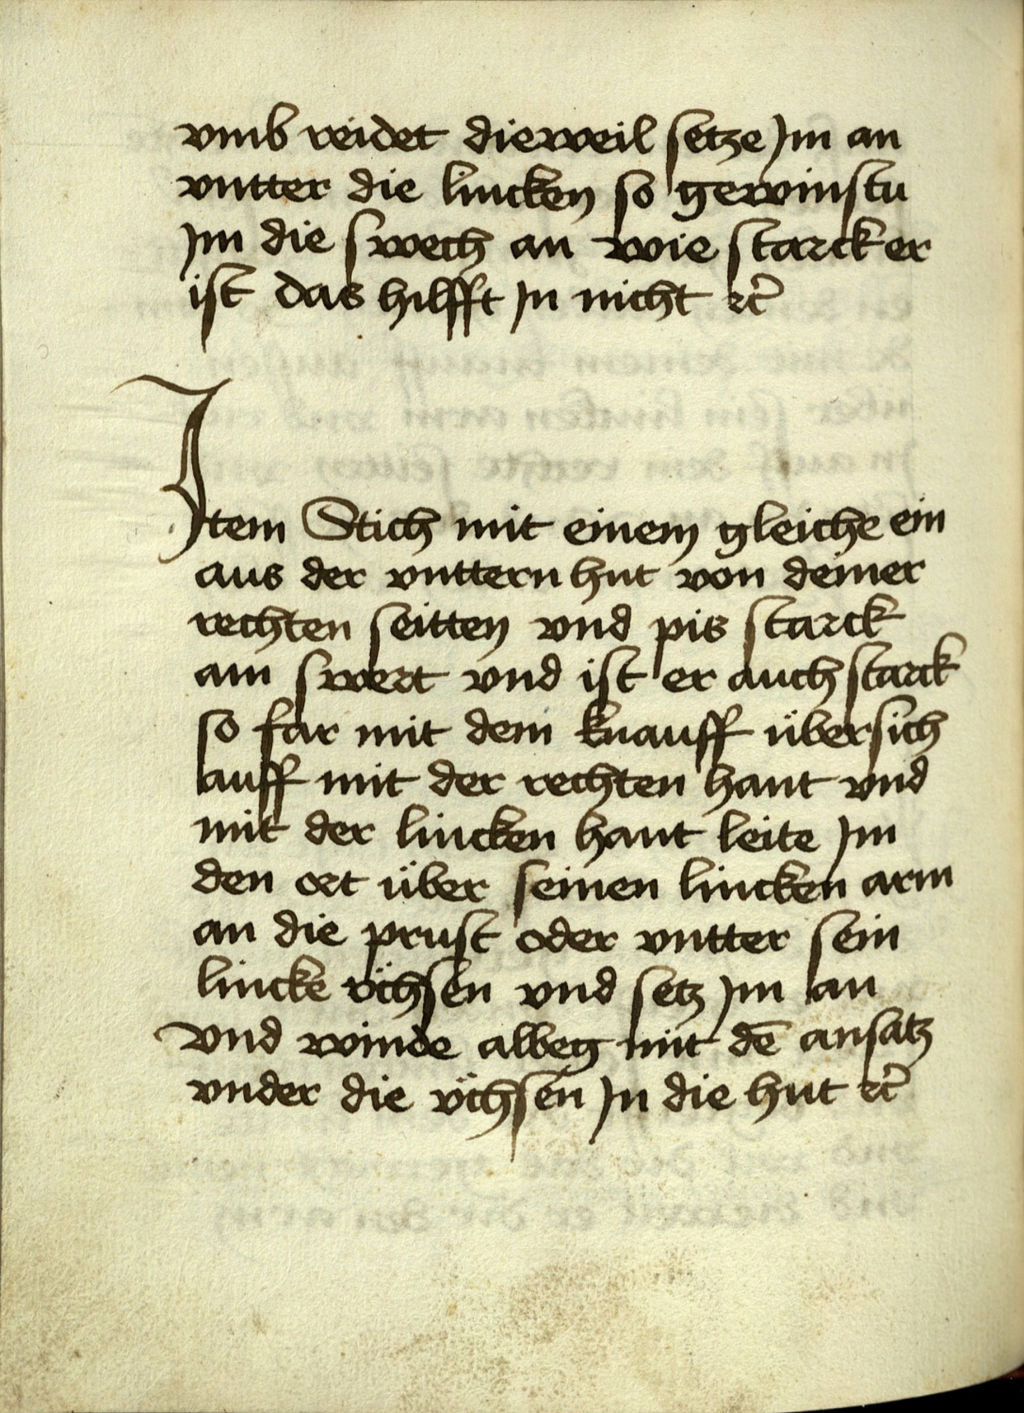 vmb reidet dieweil setze Jm an
vntter die lincken so gewinstu
Jm die swech an wie starck er
ist das hilfft Jn nicht ⁊c̃
Item Stich mit einem gleiche ein
aus der vnttern hut von deiner
rechten seitten vnd pis starck
am swert vnd ist er auch starck
so far mit dem knauff übersich
auff mit der rechten hant vnd
mit der lincken hant leite Jm
den ort über seinen lincken arm
an die prust oder vntter sein
lincke v̈chsen vnd setz Jm an
vnd winde albeg mit dē ansatz
vnder die v̈chsen Jn die hut ⁊c̃